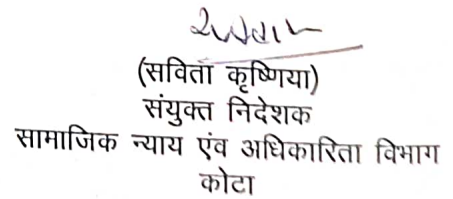 (सविता कृष्णिया)
संयुक्त निदेशक
सामाजिक न्याय एंव अधिकारिता विभाग
कोटा